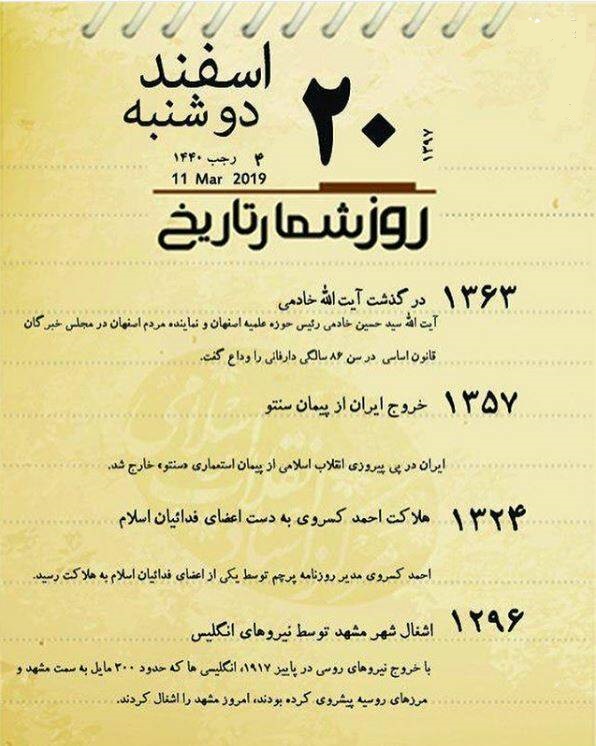 ۲۰
اسفند
دوشنبه
۱۳۹۷
۴ رجب ۱۴۴۰
11 Mar 2019
روزشمار تاریخ
۱۳۶۳ درگذشت آیت الله خادمی
آیت الله سید حسین خادمی رئیس حوزه علمیه اصفهان و نماینده مردم اصفهان در مجلس خبرگان
قانون اساسی در سن ۸۶ سالگی دارفانی را وداع گفت.
۱۳۵۷ خروج ایران از پیمان سنتو
ایران در پی پیروزی انقلاب اسلامی از پیمان استعماری «سنتو» خارج شد.
۱۳۲۴ هلاکت احمد کسروی به دست اعضای فدائیان اسلام
احمد کسروی مدیر روزنامه پرچم توسط یکی از اعضای فدائیان اسلام به هلاکت رسید.
۱۲۹۶ اشغال شهر مشهد توسط نیروهای انگلیس
با خروج نیروهای روسی در پاییز ۱۹۱۷، انگلیسی ها که حدود ۳۰۰ مایل به سمت مشهد و
مرزهای روسیه پیشروی کرده بودند، امروز مشهد را اشغال کردند.